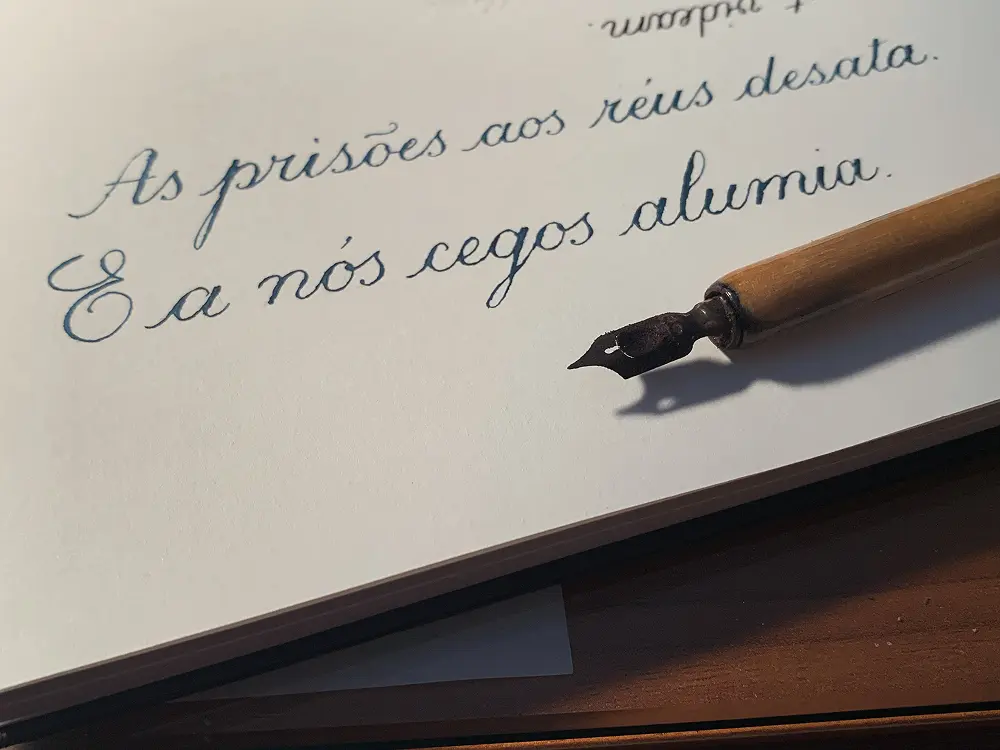 videam.
As prisões aos réus desata.
E a nós cegos alumia.